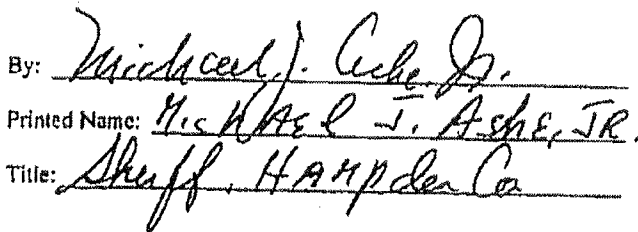 By: Michael J. Ashe, Jr.
Printed Name: MicHAEl J. AshE, JR.
Title: Sheriff, HAMpden Co